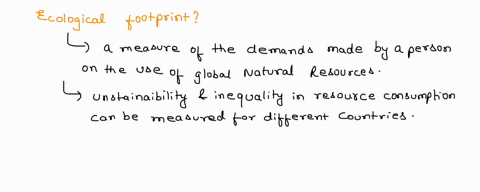 Ecological footprint?
↳ a measure of the demands made by a person
on the use of global Natural Resources.
↳ unstainaibility & inequality in resource consumption
can be measured for different countries.